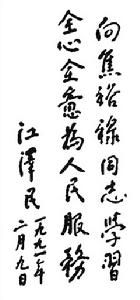 向焦裕禄同志學習
全心全意為人民服務
江泽民
一九九一年
二月九日